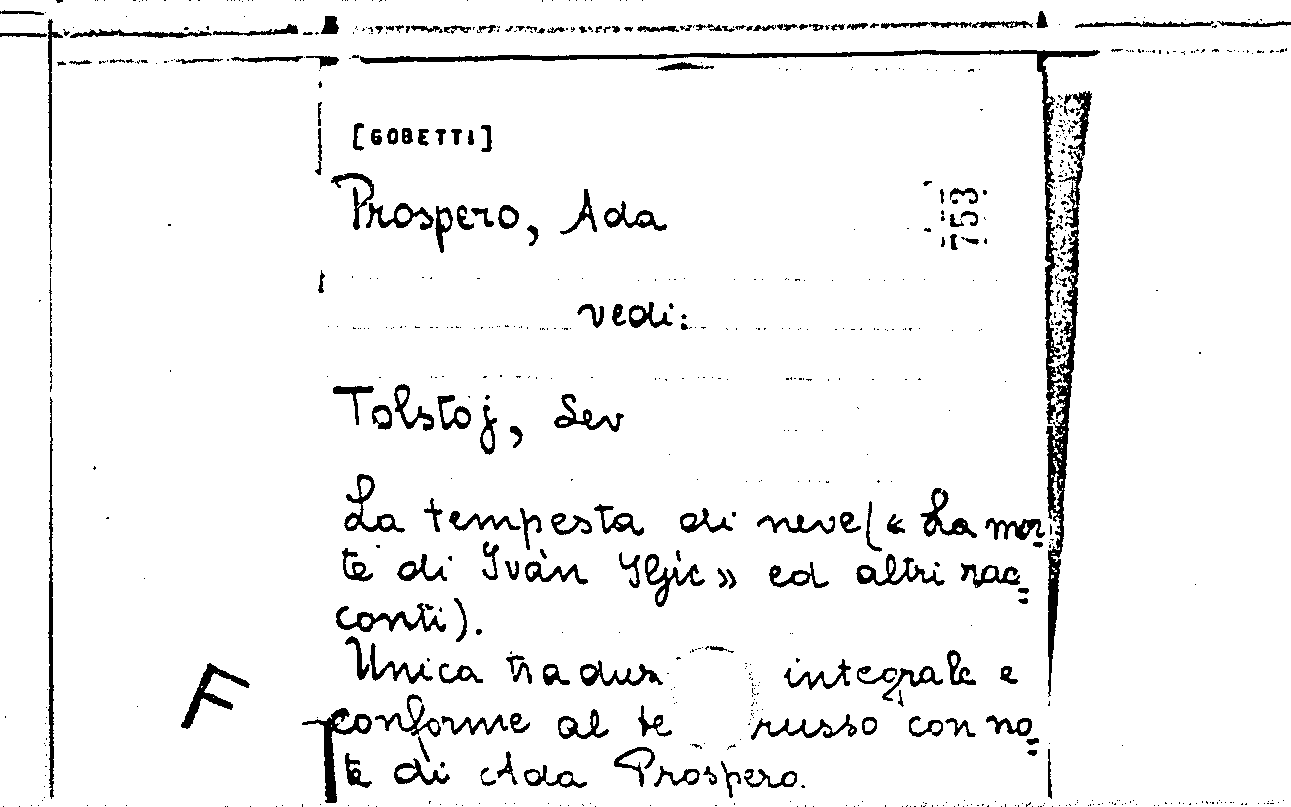 [GOBETTI]
Prospero, Ada
753
vedi:
Tolstoj, Lev
La tempesta di neve (« La mor=
te di Ivàn Iljíc » ed altri rac=
conti).
Unica tradu integrale e
conforme al te russo con no=
te di Ada Prospero.
F